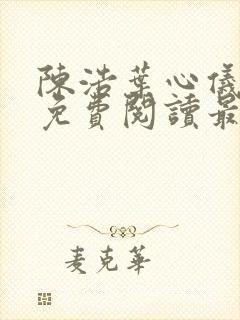 陳浩葉心儀
免費閱讀最
麦克華